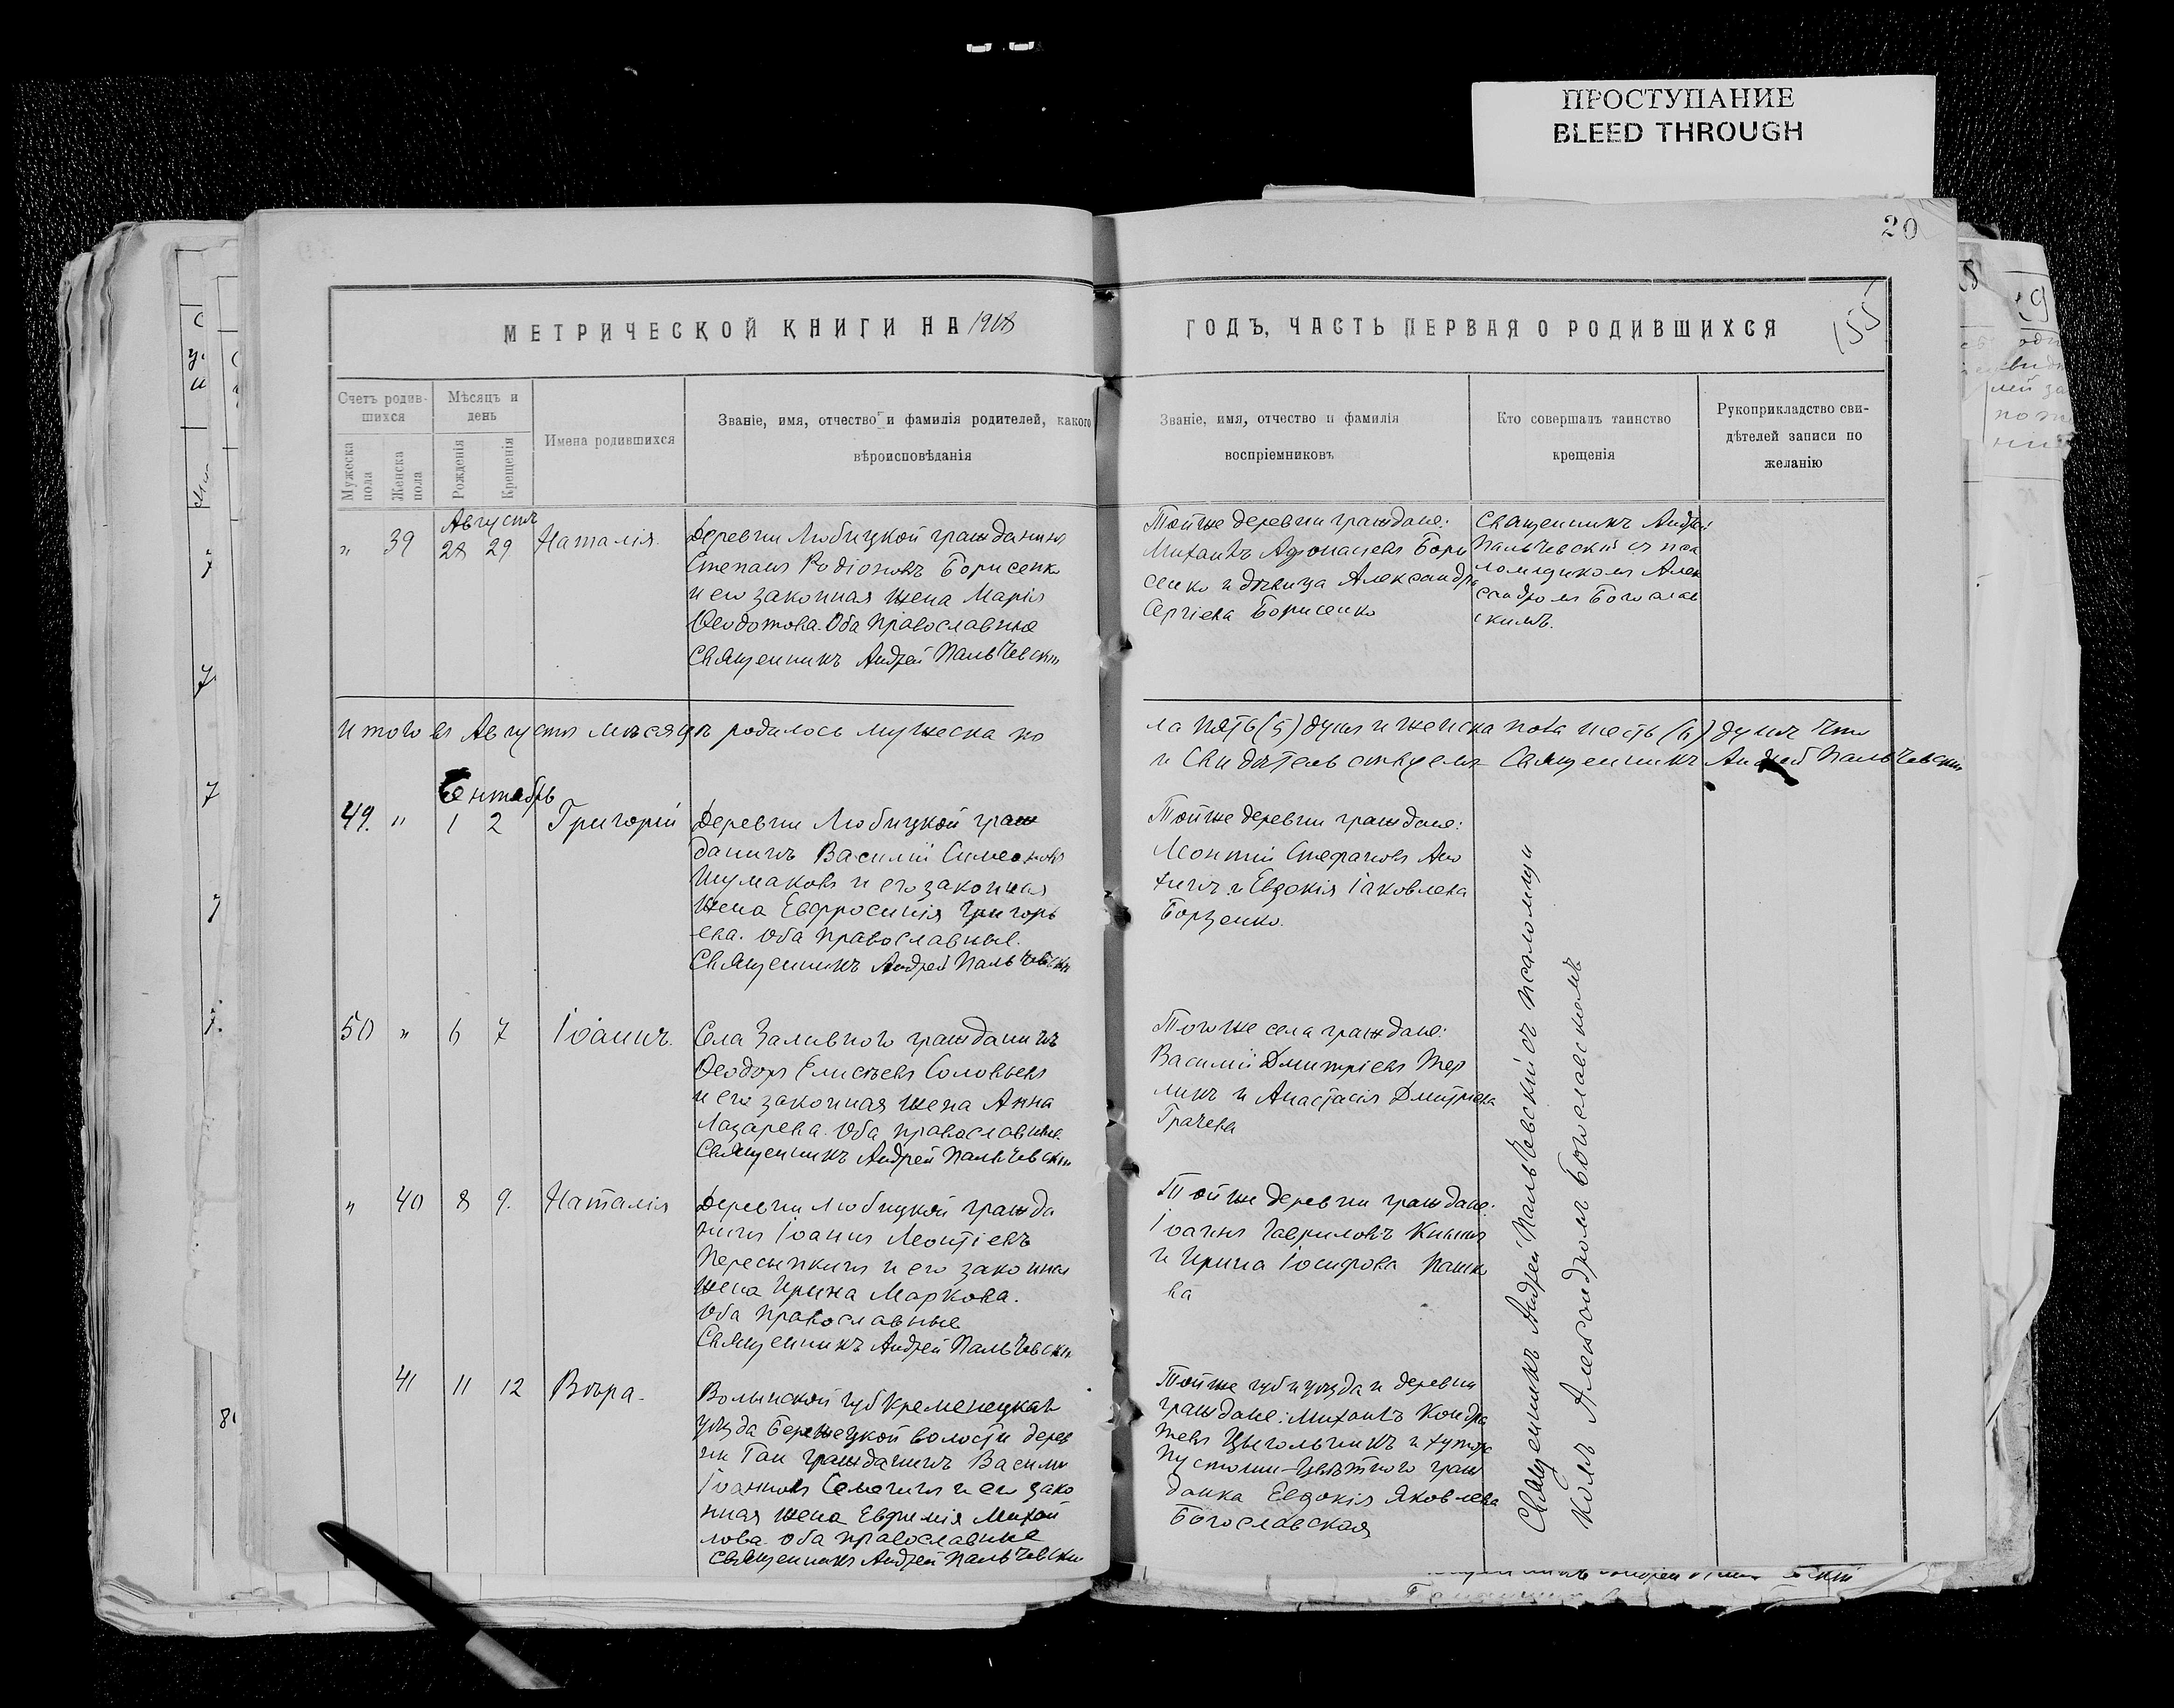 ПРОСТУПАНИЕ
BLEED THROUGH
20
155
МЕТРИЧЕСКОЙ КНИГИ НА 1918
ГОДЪ, ЧАСТЬ ПЕРВАЯ О РОДИВШИХСЯ
Счетъ родив-
шихся
Мужеска
пола
Женска
пола
Мѣсяцъ и
день
Рожденія
Крещенія
Имена родившихся
Званіе, имя, отчество и фамилія родителей, какого
вѣроисповѣданія
Званіе, имя, отчество и фамилія
воспріемниковъ
Кто совершалъ таинство
крещенія
Рукоприкладство сви-
дѣтелей записи по
желанію
Августъ
„ 39 28 29 Наталія
Деревни Любицкой гражданинъ
Степанъ Родіоновъ Борисенко
и его законная жена Марія
Ѳеодотова. Оба православные
Священникъ Андрей Пальчевскій
Тойже деревни граждане:
Михаилъ Афонасьевъ Бори
сенко и дѣвица Александра
Сергіева Борисенко
Священникъ Андрей
Пальчевскій съ пса
ломщикомъ Алек
сандромъ Богослав
скимъ.
Итого въ Августѣ мѣсяцѣ родилось мужеска по
ла пять (5) душъ и женска пола шесть (6) душъ что
и свидѣтельствуемъ Священникъ Андрей Пальчевскій
Сентябрь
49. „ 1 2 Григорій
Деревни Любицкой граж
данинъ Василій Симеоновъ
Шумаковъ и его законная
жена Евфросинія Григорь
ева. Оба православные.
Священникъ Андрей Пальчевскій
Тойже деревни граждане:
Леонтій Стефановъ
и Евдокія Іаковлева
Борзенко.
50 „ 6 7 Іоаннъ.
Села Заливного гражданинъ
Ѳеодоръ Елисѣевъ Соловьевъ
и его законная жена Анна
Лазарева. Оба православные.
Священникъ Андрей Пальчевскій
Тогоже села граждане:
Василій Дмитріевъ
и Анастасія Дмитріева
Грачева
„ 40 8 9. Наталія
Деревни Любицкой гражда
нинъ Іоаннъ Леонтіевъ
Пересыпкинъ и его законная
жена Ирина Маркова.
Оба православные
Священникъ Андрей Пальчевскій
Тойже деревни граждане:
Іоаннъ Гавриловъ
и Ирина Іосифова Пашко
ва
41 11 12 Вѣра.
Волынской губ Кременецкаго
уѣзда Бережецкой волости дерев
ни Гаи гражданинъ Василій
Іоанновъ и его зако
нная жена Евфимія Михай
лова. Оба православные
Священникъ Андрей Пальчевскій
Тойже губ и уѣзда и деревни
граждане: Михаилъ Кондра
тьевъ и хутора
граж
данка Евдокія Яковлева
Богословская
Священникъ Андрей Пальчевскій съ псаломщи
комъ Александромъ Богославскимъ